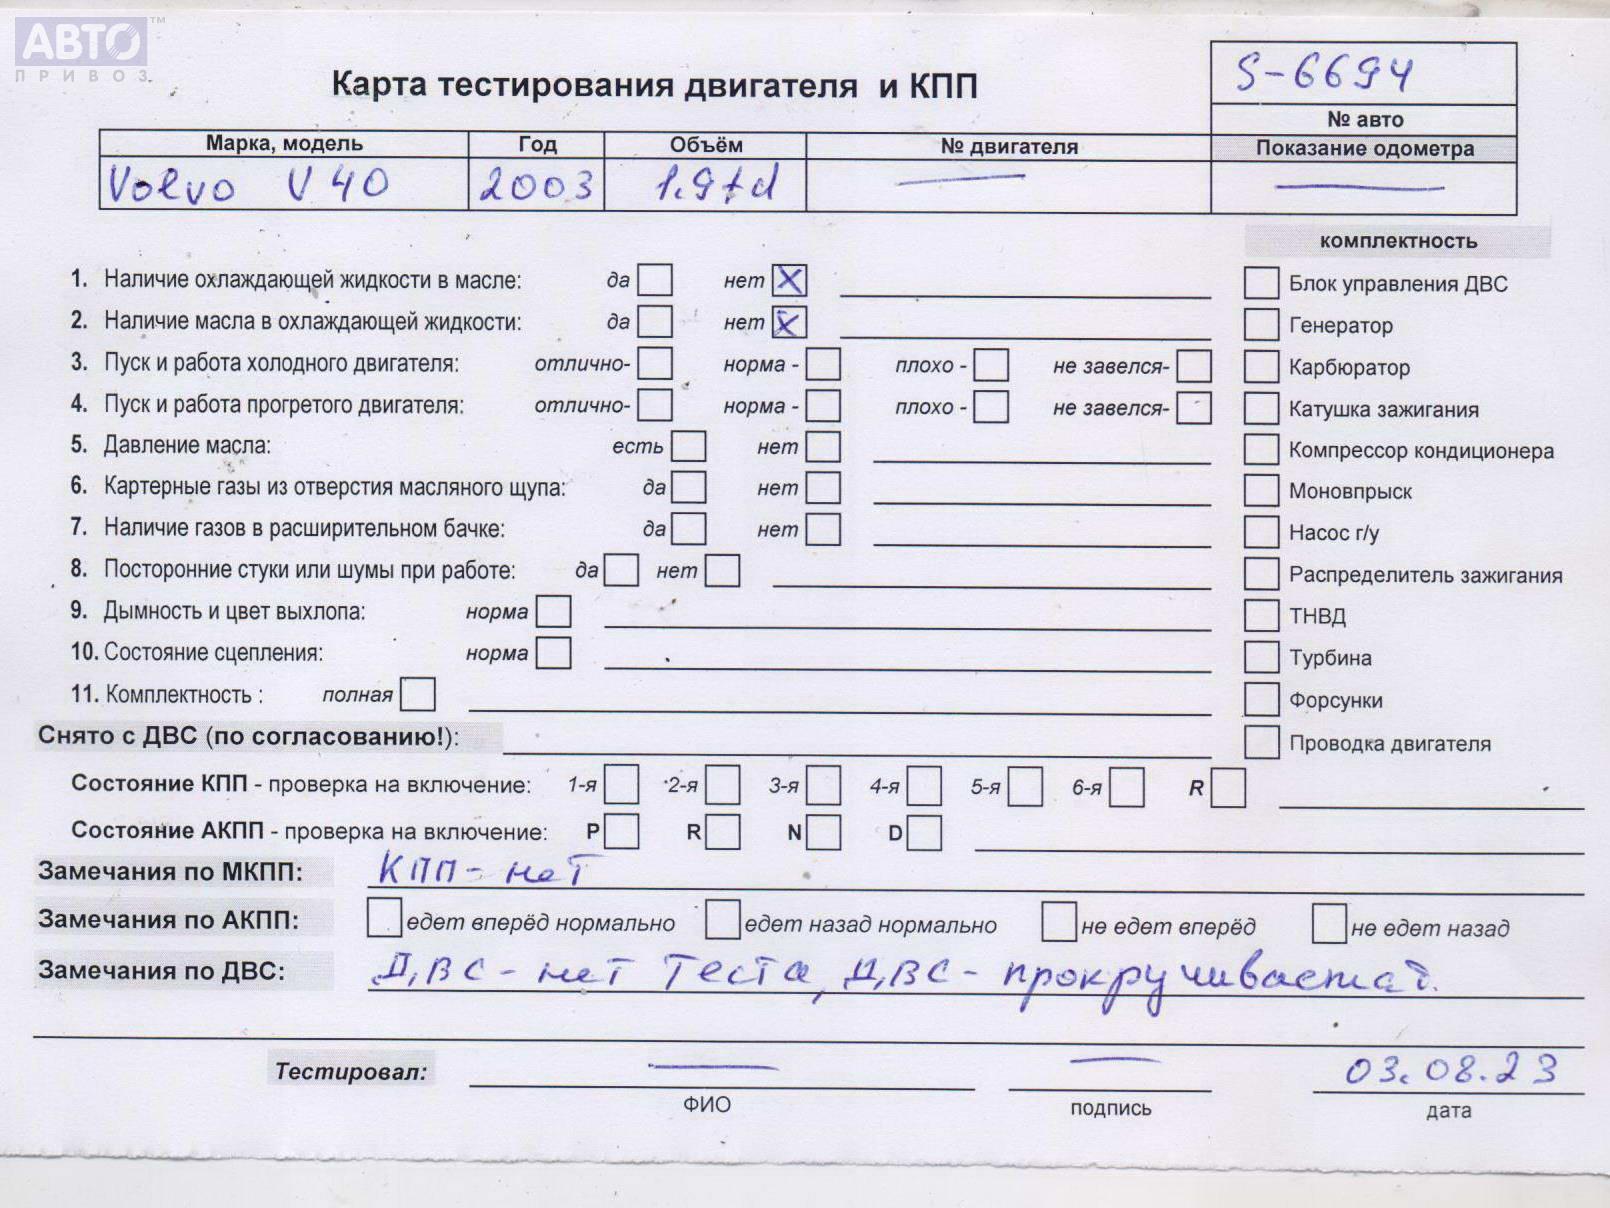 АВТО™
ПРИВОЗ
Карта тестирования двигателя и КПП
S-6694
№ авто
Марка, модель Год Объём № двигателя Показание одометра
Volvo V40 2003 1.9td
комплектность
1. Наличие охлаждающей жидкости в масле: да нет X Блок управления ДВС
2. Наличие масла в охлаждающей жидкости: да нет X Генератор
3. Пуск и работа холодного двигателя: отлично- норма - плохо - не завелся- Карбюратор
4. Пуск и работа прогретого двигателя: отлично- норма - плохо - не завелся- Катушка зажигания
5. Давление масла: есть нет Компрессор кондиционера
6. Картерные газы из отверстия масляного щупа: да нет Моновпрыск
7. Наличие газов в расширительном бачке: да нет Насос г/у
8. Посторонние стуки или шумы при работе: да нет Распределитель зажигания
9. Дымность и цвет выхлопа: норма ТНВД
10. Состояние сцепления: норма Турбина
11. Комплектность : полная Форсунки
Снято с ДВС (по согласованию!): Проводка двигателя
Состояние КПП - проверка на включение: 1-я 2-я 3-я 4-я 5-я 6-я R
Состояние АКПП - проверка на включение: P R N D
Замечания по МКПП: КПП - нет
Замечания по АКПП: едет вперёд нормально едет назад нормально не едет вперёд не едет назад
Замечания по ДВС: ДВС - нет теста, ДВС - прокручивает.
Тестировал: 03.08.23
ФИО подпись дата